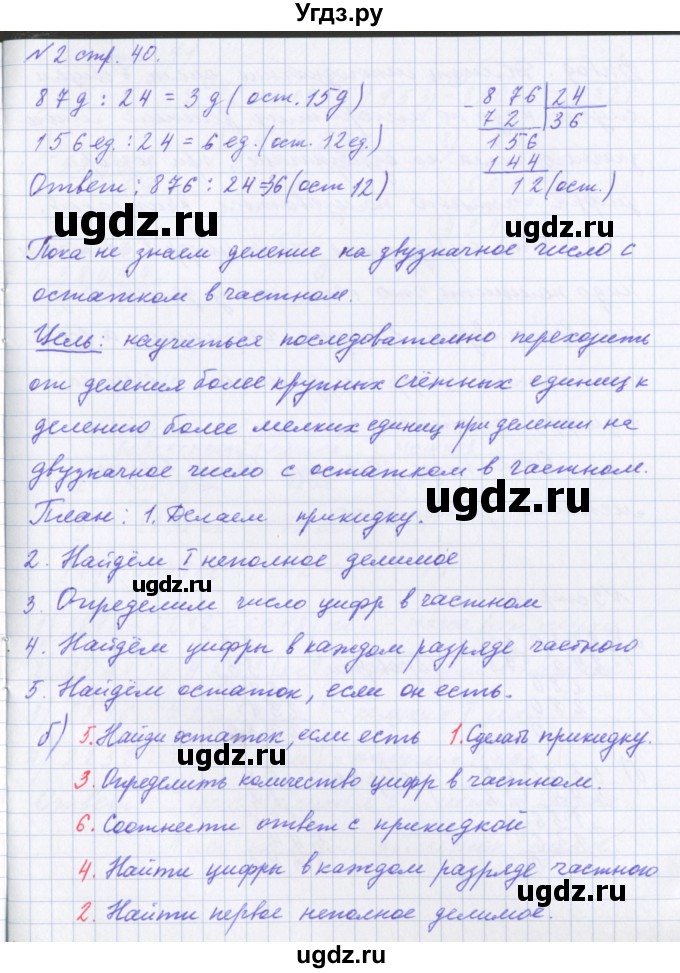 Угдз.ру
№2 стр. 40.
87д : 24 = 3д (ост. 15д)
156ед. : 24 = 6ед. (ост. 12ед.)
Ответ: 876 : 24=36(ост 12)
- 876 24
72 36
156
144
12(ост.)
ugdz.ru
ugdz.ru
Пока не знаем деление на звузначное число с
остатком в частном.
Цель: научиться последовательно переходить
от деления более крупных счётных единиц к
делению более мелких единиц при делении на
двузначное число с остатком в частном.
ugdz.ru
План: 1. Делаем прикидку.
2. Найдём I неполное делимое
ugdz.ru
3. Определим число цифр в частном
4. Найдём цифры в каждом разряде частного
5. Найдём остаток, если он есть.
б) 5. Найди остаток, если есть 1. Сделать прикидку.
ugdz.ru
3. Определить количество цифр в частном.
6. Соотнести ответ с прикидкой
4. Найти цифры в каждом разряде частного
ugdz.ru
2. Найти первое неполное делимое.
ugdz.ru